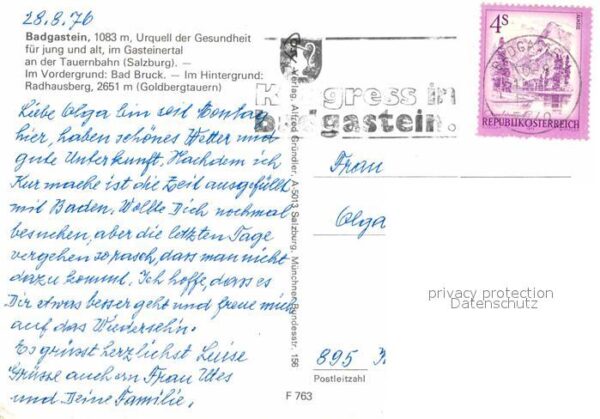 28.8.76
Badgastein, 1083 m, Urquell der Gesundheit
für jung und alt, im Gasteinertal
an der Tauernbahn (Salzburg). —
Im Vordergrund: Bad Bruck. — Im Hintergrund:
Radhausberg, 2651 m (Goldbergtauern)
Liebe Olga bin seit Montag
hier, haben schönes Wetter und
gute Unterkunft. Nachdem ich
Kur mache ist die Zeit ausgefüllt
mit Baden. Wollte Dich nochmal
besuchen, aber die letzten Tage
vergehen so rasch, das man nicht
dazu kommt. Ich hoffe, dass es
Dir etwas besser geht und freue mich
auf das Wiedersehn.
Es grüsst herzlichst Luise
Grüsse auch an Frau
und Deine Familie.
Verlag Alfred Gründler, A-5013 Salzburg, Münchner Bundesstr. 156
F 763
Kongress in
badgastein.
4 S
REPUBLIK ÖSTERREICH
Frau
Olga
privacy protection
Datenschutz
895
Postleitzahl